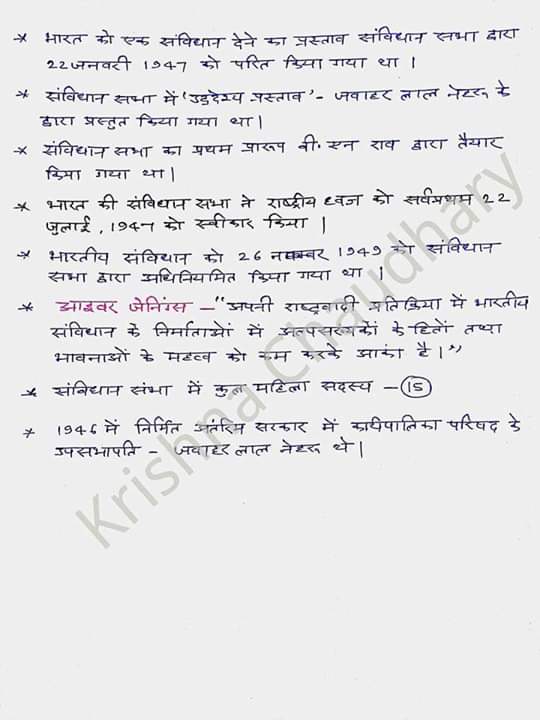 * भारत को एक संविधान देने का प्रस्ताव संविधान सभा द्वारा
22 जनवरी 1947 को परित किया गया था |
* संविधान सभा में 'उद्देश्य प्रस्ताव' - जवाहर लाल नेहरू के
द्वारा प्रस्तुत किया गया था |
* संविधान सभा का प्रथम प्रारूप वी. एन राव द्वारा तैयार
किया गया था |
* भारत की संविधान सभा ने राष्ट्रीय ध्वज को सर्वप्रथम 22
जुलाई, 1947 को स्वीकार किया |
* भारतीय संविधान को 26 नवम्बर 1949 को संविधान
सभा द्वारा अधिनियमित किया गया था |
* आइवर जेनिंग्स - "अपनी राष्ट्रवादी प्रतिक्रिया में भारतीय
संविधान के निर्माताओं में अल्पसंख्यकों के हितों तथा
भावनाओं के महत्व को कम करके आंका है |"
* संविधान सभा में कुल महिला सदस्य - 15
* 1946 में निर्मित अंतरिम सरकार में कार्यपालिका परिषद के
उपसभापति - जवाहर लाल नेहरू थे |
Krishna Chaudhary